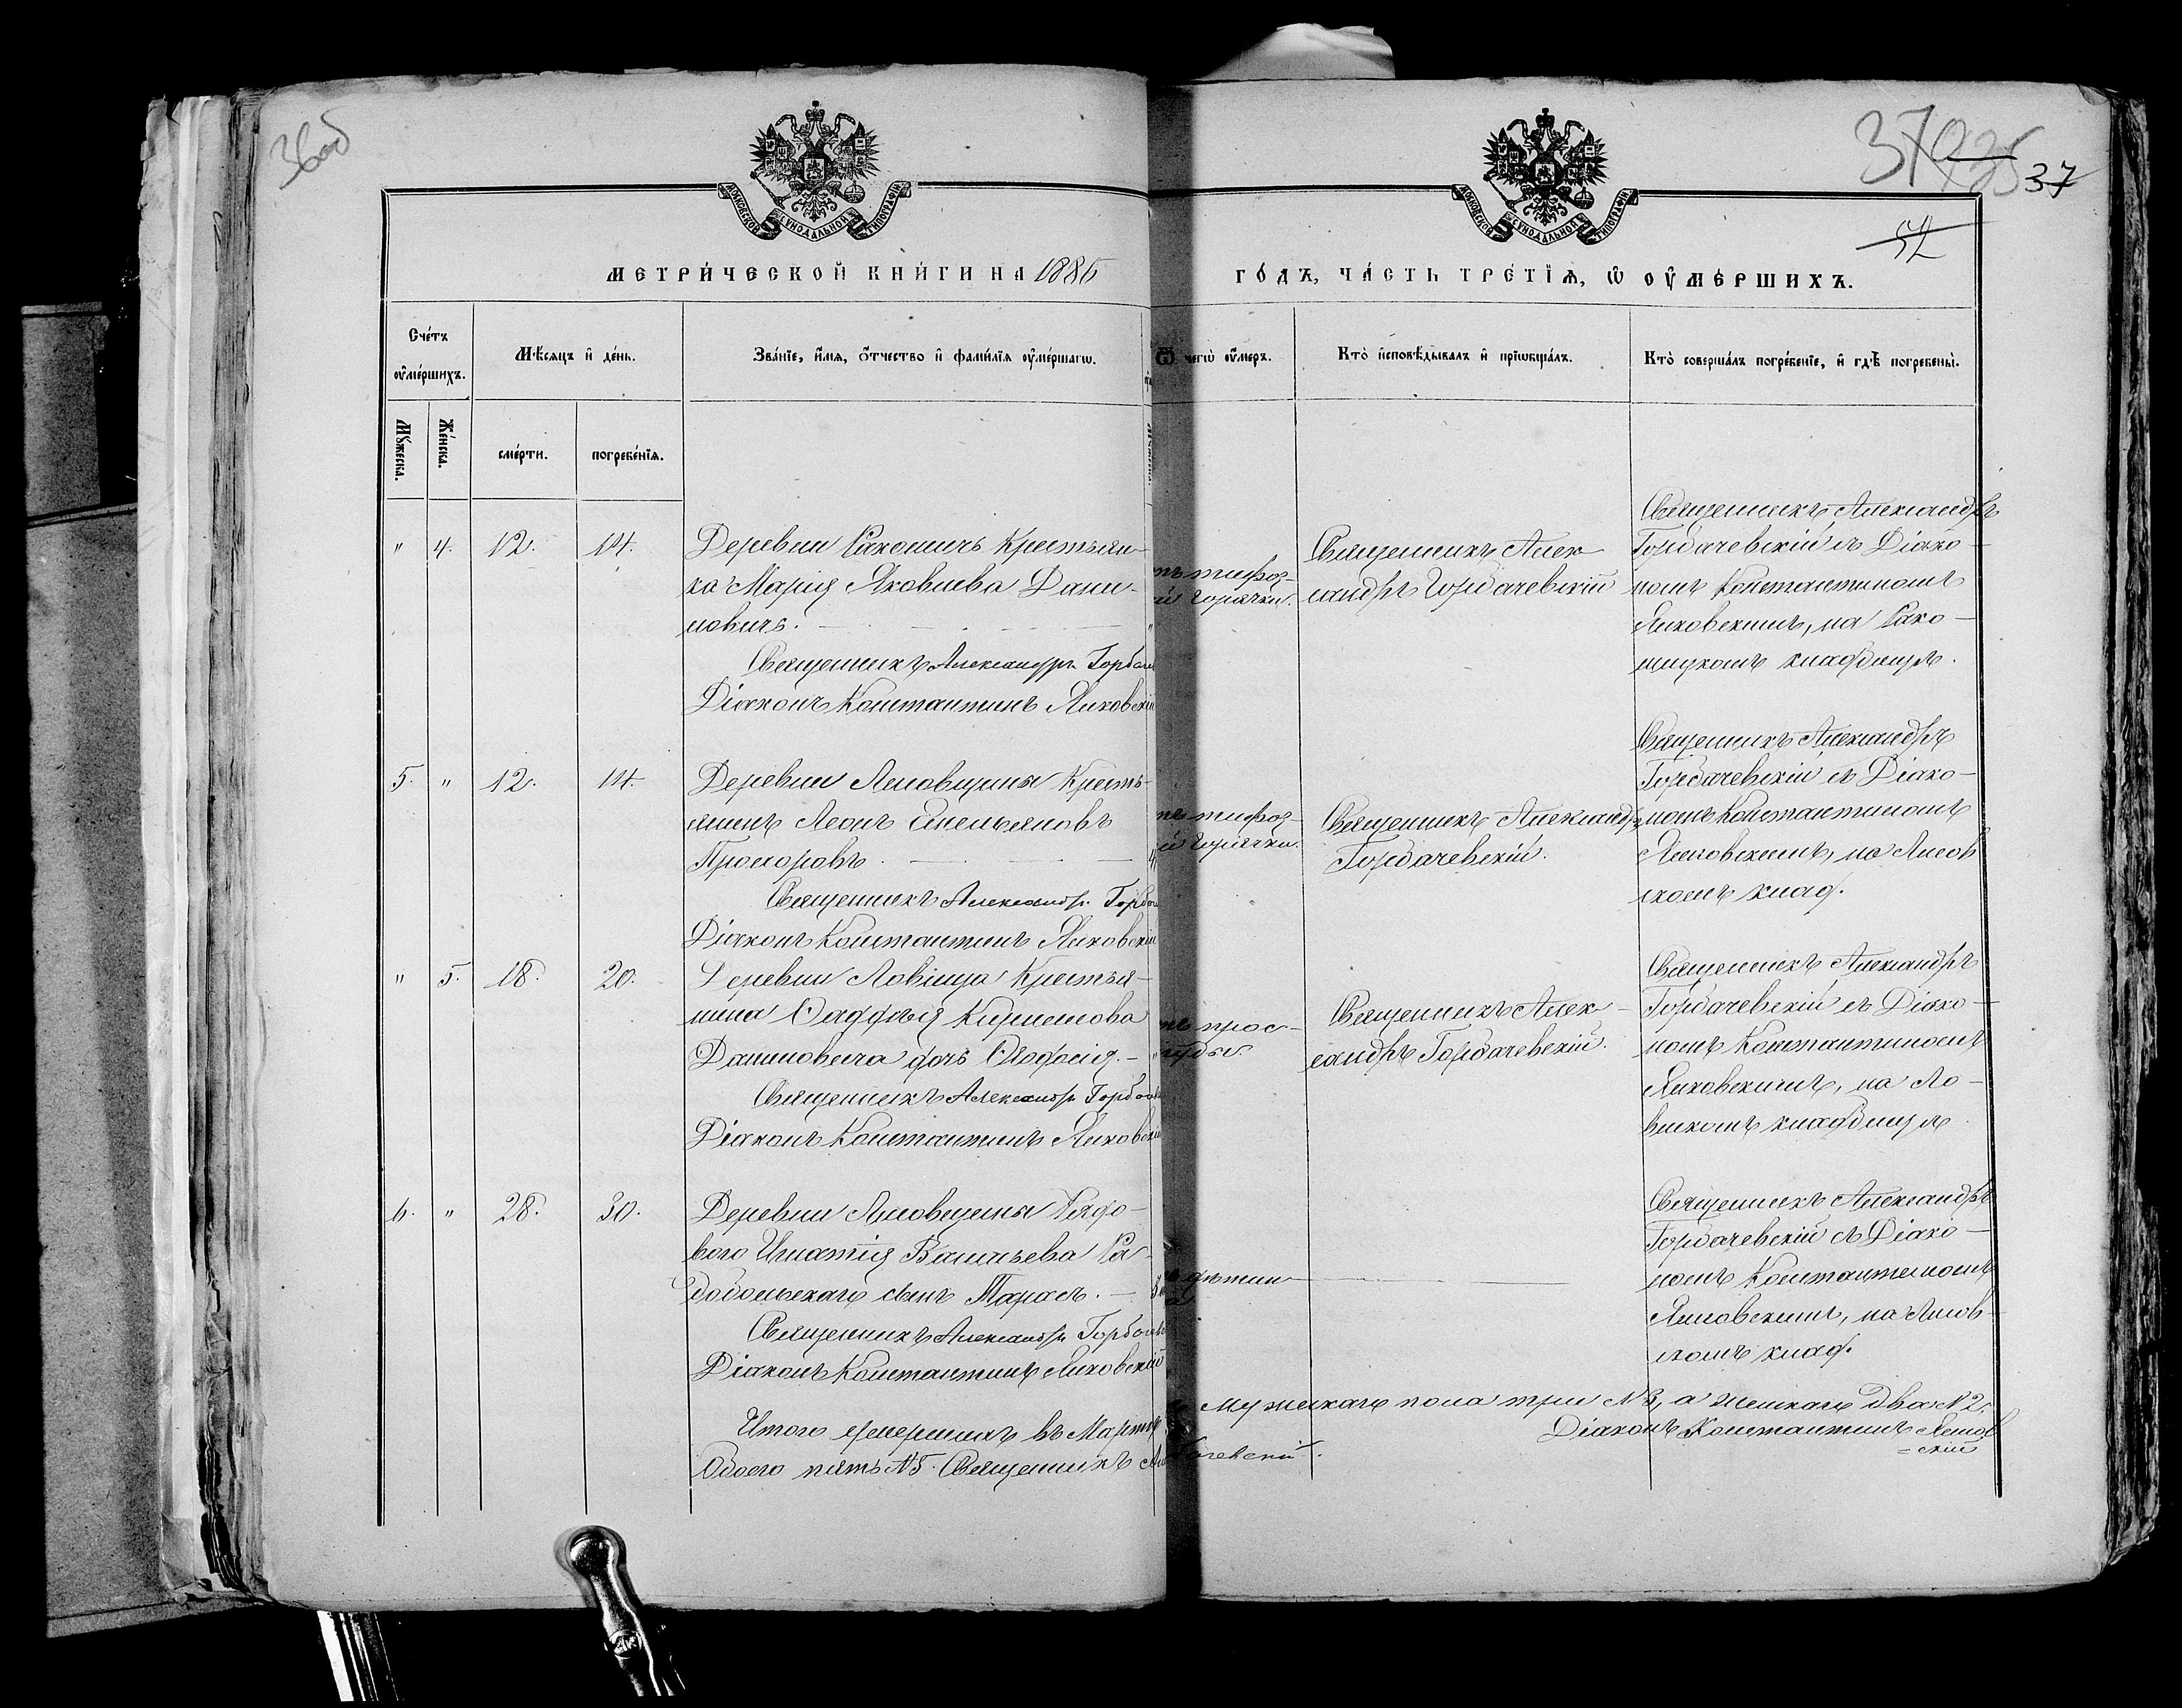 36об
37
37
МОСКОВСКОЙ СѴНОДАЛЬНОЙ ТИПОГРАФІИ
МОСКОВСКОЙ СѴНОДАЛЬНОЙ ТИПОГРАФІИ
МЕТРИ́ЧЕСКОЙ КНИ́ГИ НА 1886
ГО́ДЪ, ЧА́СТЬ ТРЕ́ТІѦ, Ѡ ОУ҆МЕ́РШИХЪ.
Сче́тъ оу҆ме́ршихъ.
Мѣ́сяцъ и҆ де́нь.
Зва́нїе, и҆́мѧ, ѻ҆́тчество и҆ фами́лїѧ оу҆ме́ршагѡ.
Ѿ чегѡ̀ оу҆́меръ.
Кто̀ и҆сповѣ́дывалъ и҆ прїѡбща́лъ.
Кто̀ соверша́лъ погребе́нїе, и҆ гдѣ̀ погребены̀.
Мꙋ́жеска.
Же́нска.
сме́рти.
погребе́нїѧ.
" 4. 12. 14.
Деревни Рахоничъ Крестьян-
ка Марія Яковлева Дани-
ловичъ.
Священникъ Александръ Горбач
Діаконъ Константинъ Янковскій
тифоз-
й горячки.
Священникъ Алек-
сандръ Горбачевскій
Священникъ Александръ
Горбачевскій съ Діако-
номъ Константиномъ
Янковскимъ, на Рахо-
ницкомъ кладбищѣ.
5. " 12. 14.
Деревни Лисовщины Кресть-
янинъ Леонъ Емельяновъ
Прохоровъ
Священникъ Александръ Горбач
Діаконъ Константинъ Янковскій
тифоз-
й горячки.
Священникъ Александръ
Горбачевскій.
Священникъ Александръ
Горбачевскій съ Діако-
номъ Константиномъ
Янковскимъ, на Лисов
скомъ клад.
" 5. 18. 20.
Деревни Ловища Крестья-
нина Фаддея
Даниловича дочь Ѳеодосія.
Священникъ Александръ Горбачев
Діаконъ Константинъ Янковскій
прос-
туды.
Священникъ Алек-
сандръ Горбачевскій.
Священникъ Александръ
Горбачевскій съ Діако-
номъ Константиномъ
Янковскимъ, на Ло-
вискомъ кладбищѣ
6. " 28. 30.
Деревни Лисовщины Рядо-
вого Игнатія Васильева Ра-
добольскаго сынъ Тарасъ.
Священникъ Александръ Горбачев
Діаконъ Константинъ Янковскій
Священникъ Александръ
Горбачевскій съ Діако-
номъ Константиномъ
Янковскимъ, на Лисов-
скомъ клад.
Итого умершихъ въ Мартѣ мужескаго пола три №3, а женскаго два №2.
Обоего пять №5. Священникъ Ал
бачевскій. Діаконъ Константинъ Янков
-скій